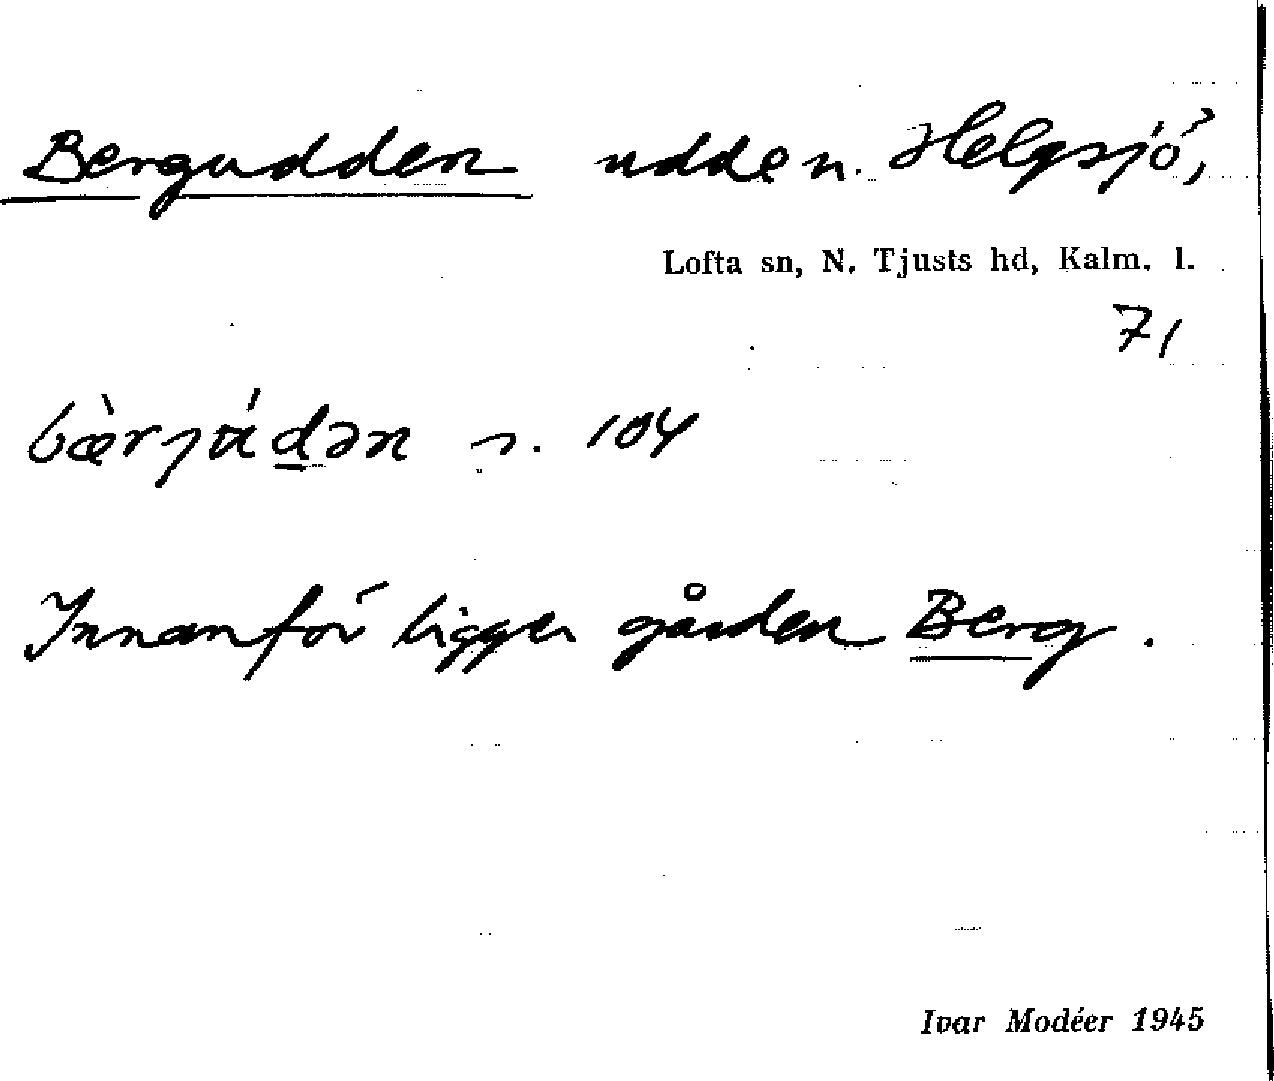 Bergudden udde n. Helgsjö,
Lofta sn, N. Tjusts hd, Kalm. l.
71
s. 104
Innanför ligger gården Berg.
Ivar Modéer 1945